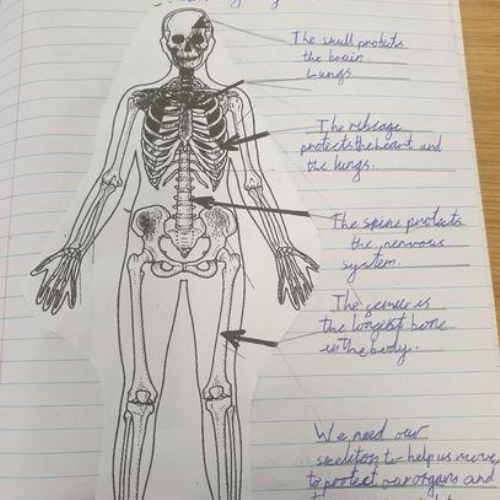 The skull protects
the brain.
Lungs
The ribcage
protects the heart and
the lungs.
The spine protects
the nervous
system.
The femur is
the longest bone
in the body.
We need our
skeleton to help us move,
to protect our organs and